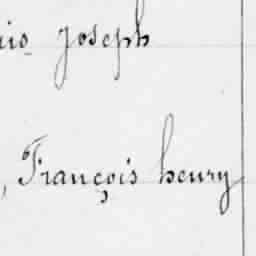 joseph
, François henry